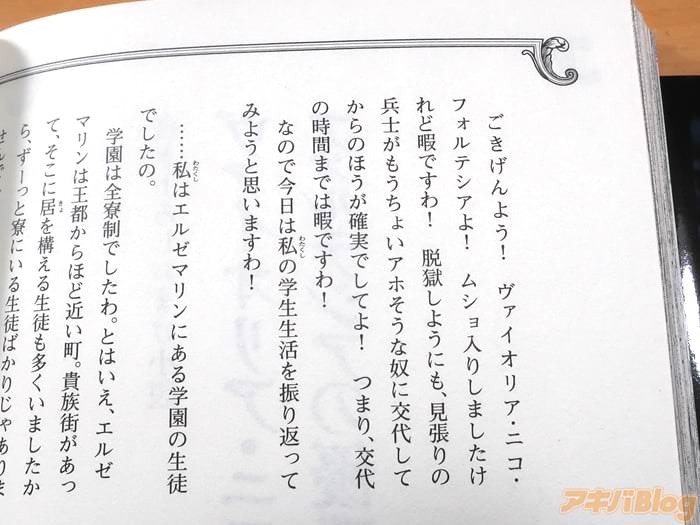 ごきげんよう！　ヴァイオリア・ニコ・
フォルテシアよ！　ムショ入りしましたけ
れど暇ですわ！　脱獄しようにも、見張りの
兵士がもうちょいアホそうな奴に交代して
からのほうが確実でしてよ！　つまり、交代
の時間までは暇ですわ！
なので今日は私の学生生活を振り返って
みようと思いますわ！
……私はエルゼマリンにある学園の生徒
でしたの。
学園は全寮制でしたわ。とはいえ、エルゼ
マリンは王都からほど近い町。貴族街があっ
て、そこに居を構える生徒も多くいましたか
ら、ずーっと寮にいる生徒ばかりじゃありま
アキバBlog